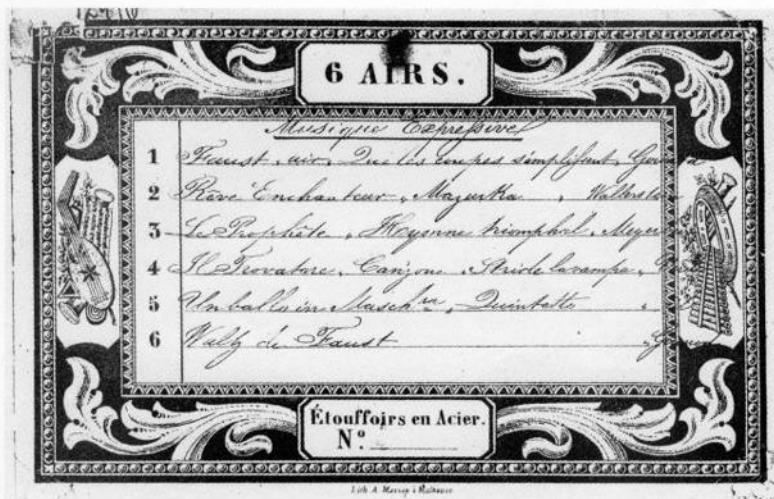 6 AIRS.
Musique Expressive
1 Faust, air, Que les coupes s'emplissent, Gounod
2 Rêve Enchanteur, Mazurka,
3 Le Prophète, Hymne triomphal,
4 Il Trovatore, Canzone, Stride la vampa,
5 Un ballo in Masch^ra, Quintetto "
6 Waltz de Faust
Étouffoirs en Acier.
N°
Lith. A.